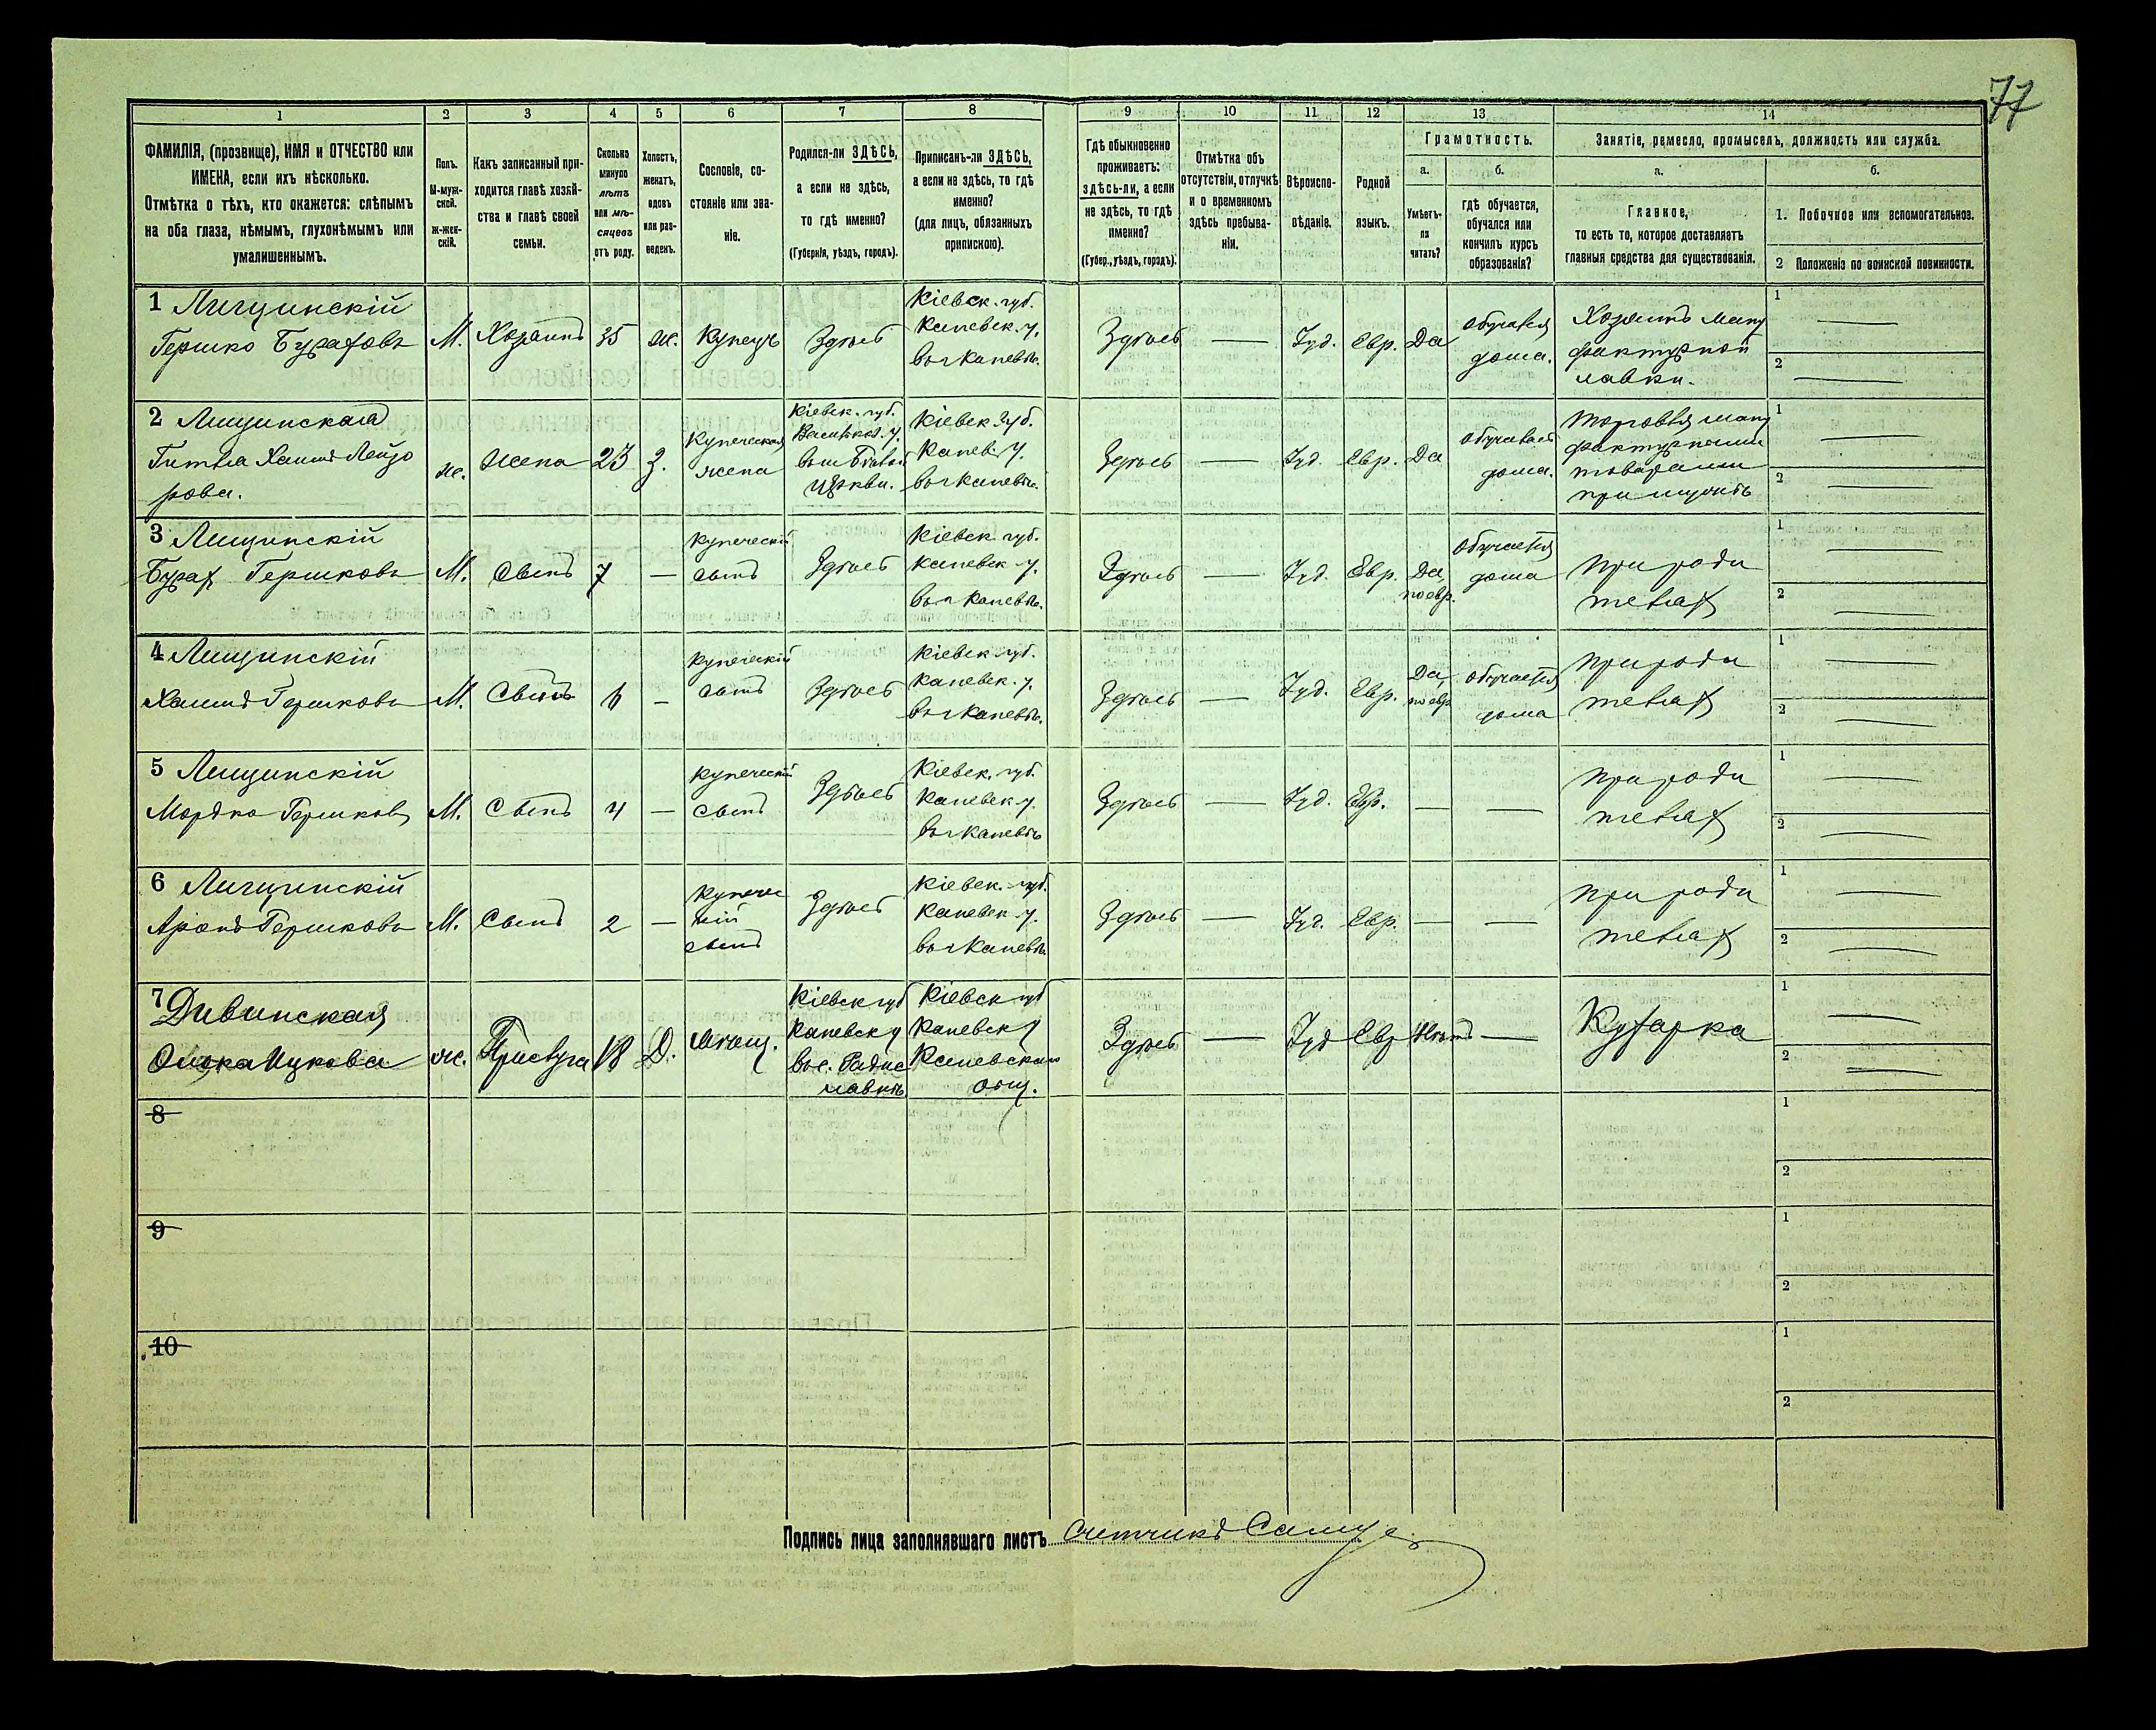 77
1
2
3
4
5
6
7
8
9
10
11
12
13
14
ФАМИЛІЯ, (прозвище), ИМЯ и ОТЧЕСТВО или
ИМЕНА, если ихъ нѣсколько.
Отмѣтка о тѣхъ, кто окажется: слѣпымъ
на оба глаза, нѣмымъ, глухонѣмымъ или
умалишеннымъ.
Полъ.
М-муж-
ской.
Ж-жен-
скій.
Какъ записанный при-
ходится главѣ хозяй-
ства и главѣ своей
семьи.
Сколько
минуло
лѣтъ
или мѣ-
сяцевъ
отъ роду.
Холостъ,
женатъ,
вдовъ
или раз-
веденъ.
Сословіе, со-
стояніе или зва-
ніе.
Родился-ли ЗДѢСЬ,
а если не здѣсь,
то гдѣ именно?
(Губернія, уѣздъ, городъ).
Приписанъ-ли ЗДѢСЬ,
а если не здѣсь, то гдѣ
именно?
(для лицъ, обязанныхъ
припискою).
Гдѣ обыкновенно
проживаетъ:
здѣсь-ли, а если
не здѣсь, то гдѣ
именно?
(Губер., уѣздъ, городъ).
Отмѣтка объ
отсутствіи, отлучкѣ
и о временномъ
здѣсь пребыва-
ніи.
Вѣроиспо-
вѣданіе.
Родной
языкъ.
Грамотность.
а.
Умѣетъ-
ли
читать?
б.
гдѣ обучается,
обучался или
кончилъ курсъ
образованія?
Занятіе, ремесло, промыселъ, должность или служба.
а.
Главное,
то есть то, которое доставляетъ
главныя средства для существованія.
б.
1. Побочное или вспомогательное.
2 Положеніе по воинской повинности.
1 Лищинскій
Гершко Бурахов
М. Хозяинъ 35 ж. Купецъ Здѣсь
Кіевск. губ.
Каневск. у.
въ г Каневѣ.
Здѣсь — Іуд. Евр. Да
обучался
дома.
Хозяинъ ману
фактурной
лавки.
1 —
2 —
2 Лищинская
Гитля Хаина Лейзо
рова.
ж. Жена 23 З.
Купеческая
жена
Кіевск. губ.
Васильков. у.
въ м Бѣлой
Церкви.
Кіевск губ.
Канев. у.
въ г Каневѣ.
Здѣсь — Іуд. Евр. Да
обучалась
дома.
Торговля ману
фактурными
товарами
при мужѣ
1 —
2 —
3 Лищинскій
Бурах Гершков
М. Сынъ 7 —
купеческій
сынъ
Здѣсь
Кіевск. губ.
Каневск у.
въ г Каневѣ.
Здѣсь — Іуд. Евр.
Да,
по евр.
Обучается
дома
При роди
телях
1 —
2 —
4 Лищинскій
Хаимъ Гершков
М. Сынъ 6 —
купеческій
сынъ
Здѣсь
Кіевск губ.
Каневск. у.
въ г Каневѣ.
Здѣсь — Іуд. Евр.
Да,
по евр
обучается
дома
При роди
телях
1 —
2 —
5 Лищинскій
Мордко Гершков
М. Сынъ 4 —
купеческій
сынъ
Здѣсь
Кіевск. губ.
Каневск у.
въ г Каневѣ
Здѣсь — Іуд. Евр. — —
При роди
телях
1 —
2 —
6 Лищинскій
Аронъ Гершков
М. Сынъ 2 —
Купечес
кій
сынъ
Здѣсь
Кіевск. губ.
Каневск у.
въ г Каневѣ.
Здѣсь — Іуд. Евр. — —
При роди
телях
1 —
2 —
7 Дивинская
Ицкова
ж. Прислуга 18 Д. Мѣщ.
Кіевск губ
Каневск у
Кіевск губ
Каневск у
Каневскаго
общ.
Здѣсь — Іуд Евр Нѣтъ —
Кухарка
1 —
2 —
8
1
2
9
1
2
10
1
2
Подпись лица заполнявшаго листъ Счетчикъ